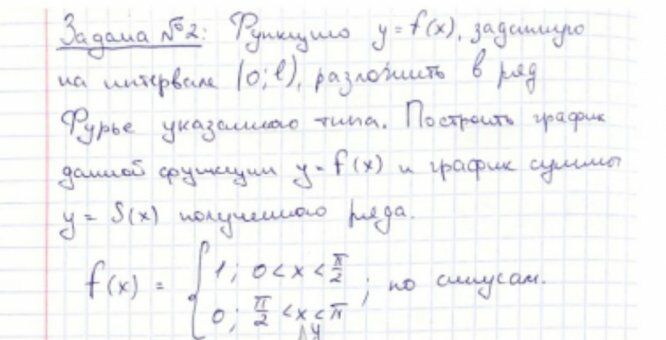 Задача №2: Функцию y=f(x), заданную
на интервале (0;l), разложить в ряд
Фурье указанного типа. Построить график
данной функции y=f(x) и график суммы
y = S(x) полученного ряда.
f(x) = { 1; 0<x<π/2
0; π/2<x<π ; по синусам.
y